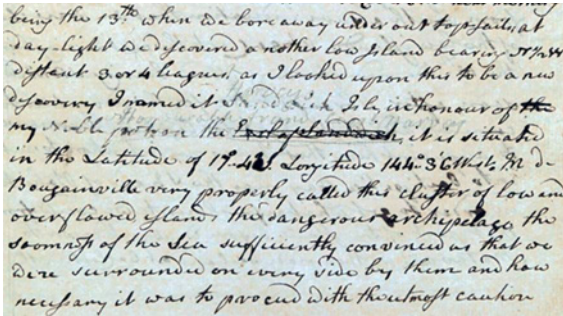 being the 13th when we bore away under out topsails, at
day-light we discovered a nother low Island bearing
distant 3 or 4 leagues, as I looked upon this to be a new
discovery I named it in honour of the
my Noble patron the Earl of Sandwich, it is situated
in the Latitude of 17°. Longitude 144° 36 West, M de
Bougainville very properly called this cluster of low and
overflowed islands the dangerous archipelago the
smoothness of the Sea sufficiently convinced us that we
were surrounded on every side by them and how
necessary it was to proceed with the utmost caution